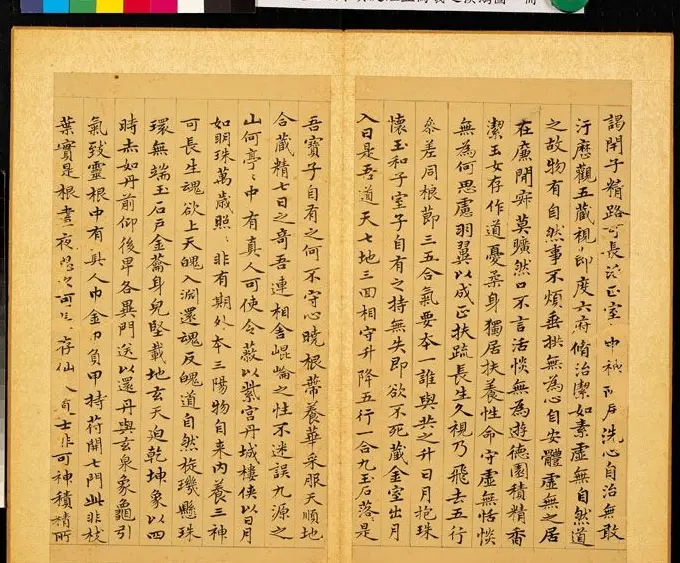 謁閉子精路可長 正室 中神 戶洗心自治無敢
汙歷觀五藏視節度六府脩治潔如素虛無自然道
之故物有自然事不煩垂拱無為心自安體虛無之居
在廉間寂莫曠然口不言活惔無為遊德園積精香
潔玉女存作道憂柔身獨居扶養性命守虛無恬惔
無為何思慮羽翼以成正扶疏長生久視乃飛去五行
參差同根莭三五合氣要本一誰與共之升日月抱珠
懷玉和子室子自有之持無失即欲不死藏金室出月
入日是吾道天七地三回相守升降五行一合九玉石落〻是
吾寶子自有之何不守心曉根蔕養華采服天順地
合藏精七日之奇吾連相舍崐崘之性不迷誤九源之
山何亭〻中有真人可使令蔽以紫宮丹城樓俠以日月
如明珠萬歲照〻非有期外本三陽物自来內養三神
可長生魂欲上天魄入淵還魂反魄道自然旋璣懸珠
環無端玉石戶金蘥身完堅載地玄天迫乾坤象以四
時赤如丹前仰後卑各異門送以還丹與玄泉象龜引
氣致靈根中有真人巾金巾負甲持苻開七門此非枝
葉實是根晝夜思之可 存仙人 士非可神積精所